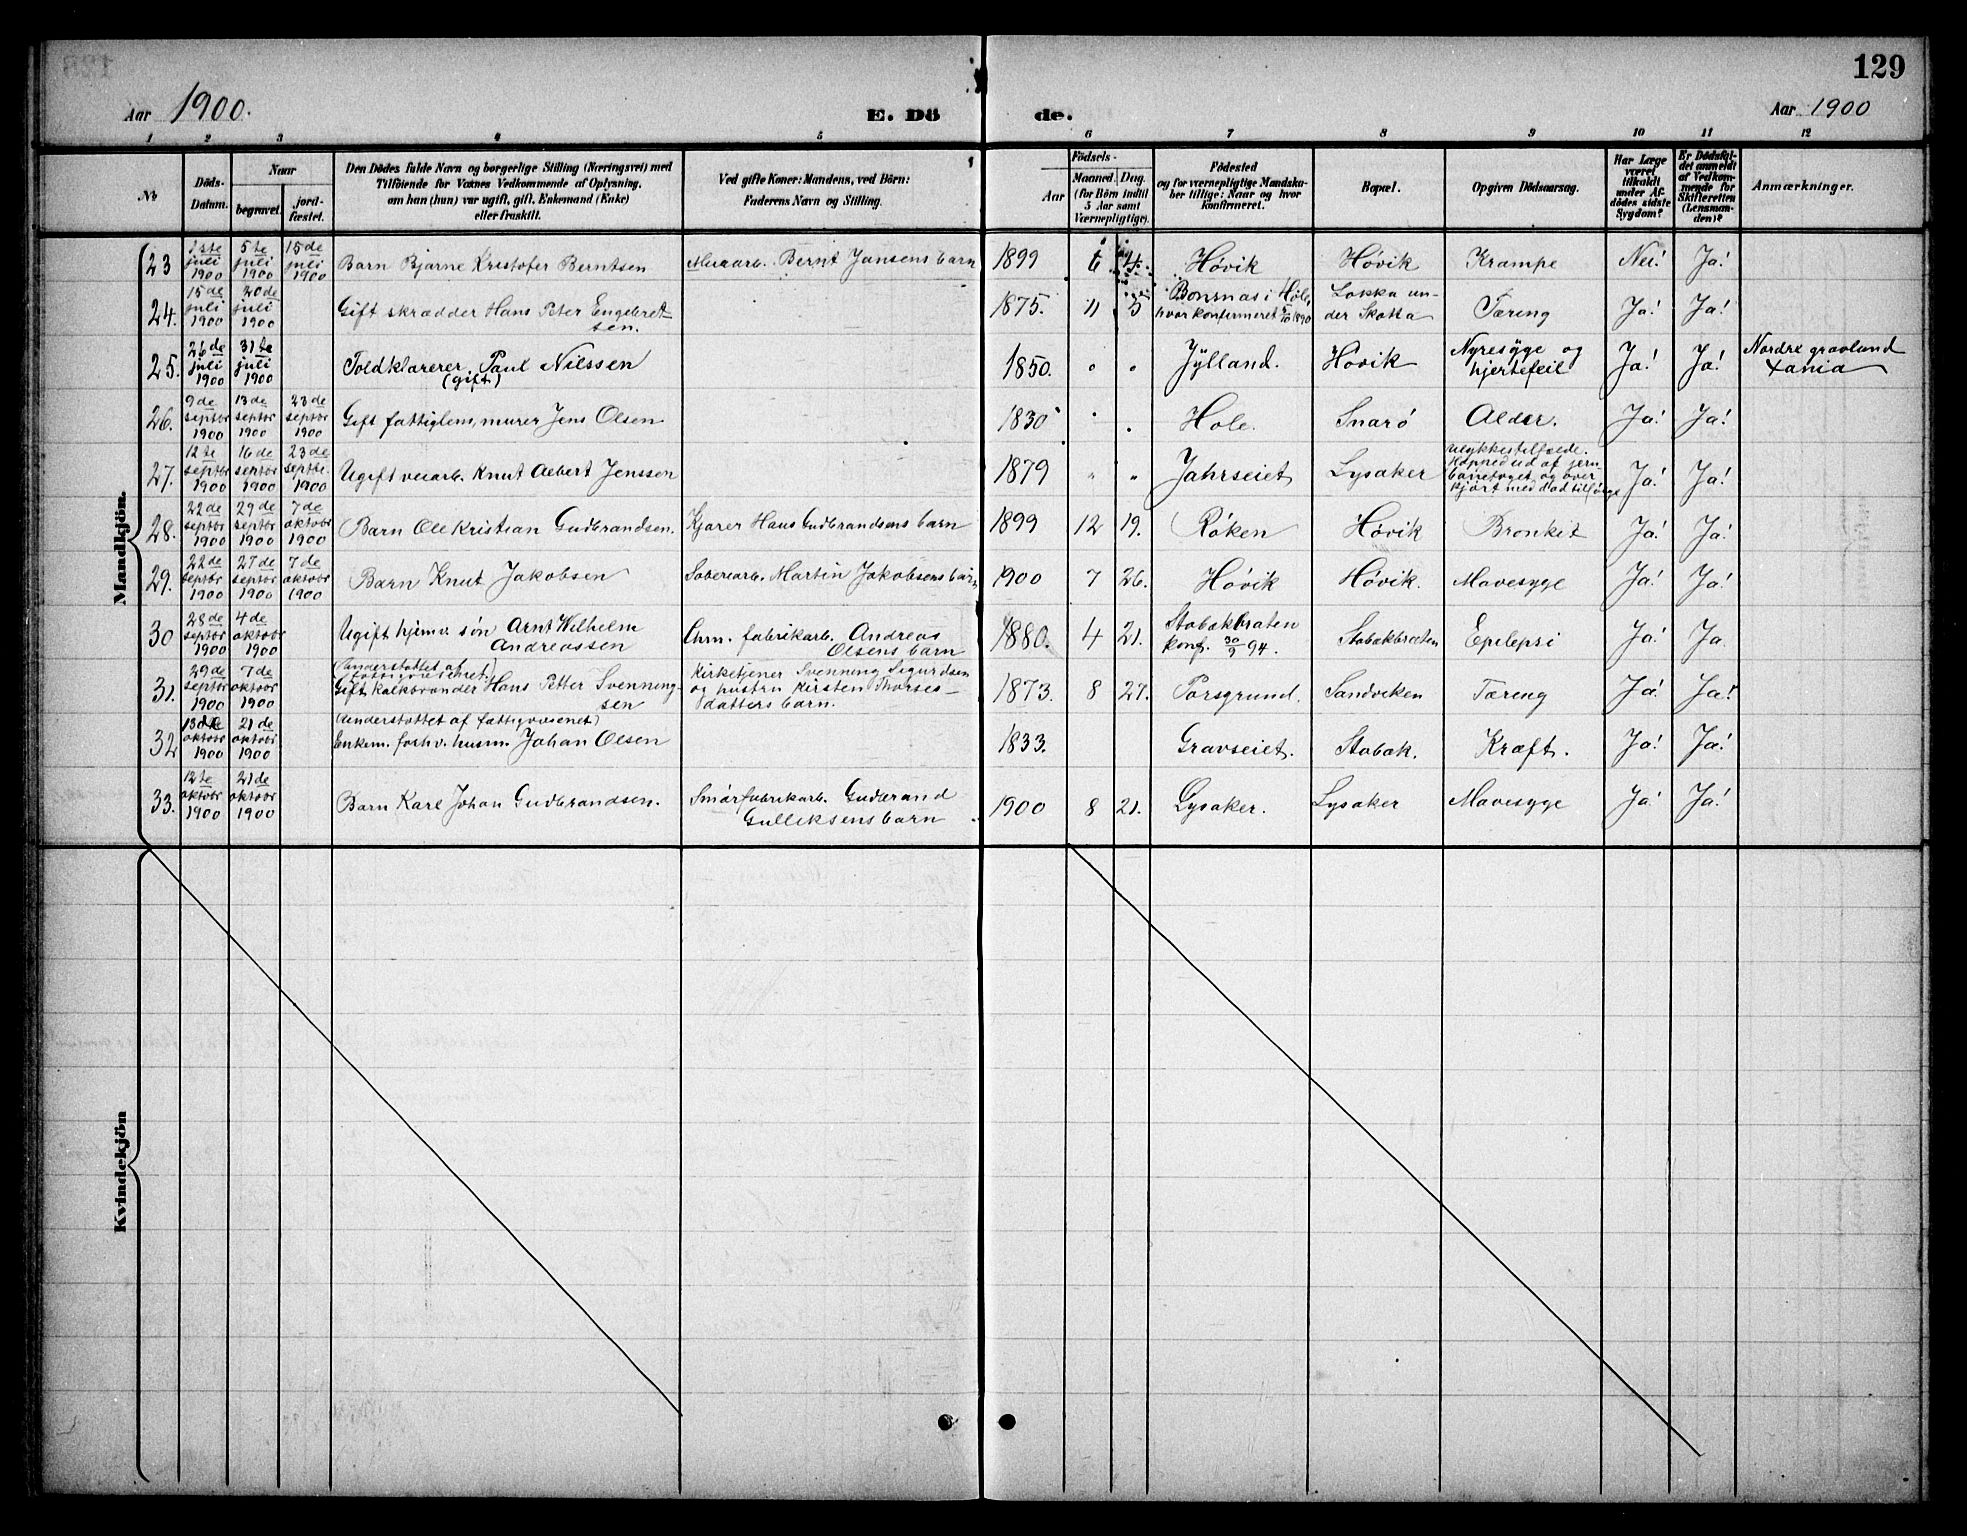 129
Aar 1900.
E. Dö
de.
Aar 1900
1 2 3 4 5 6 7 8 9 10 11 12
No
Döds-
Datum.
Naar
begravet.
jord-
fæstet.
Den Dödes fulde Navn og borgerlige Stilling (Næringsvei) med
Tilföiende for Voxnes Vedkommende af Oplysning,
om han (hun) var ugift, gift, Enkemand (Enke)
eller fraskilt.
Ved gifte Koner: Mandens, ved Börn:
Faderens Navn og Stilling.
Födsels-
Aar
Maaned.
Dag.
(for Börn indtil
5 Aar samt
Værnepligtige).
Födested
og for værnepligtige Mandska-
ber tillige: Naar og hvor
konfirmeret.
Bopæl.
Opgiven Dödsaarsag.
Har Læge
været
tilkaldt
under Af-
dödes sidste
Sygdom?
Er Dödsfal-
det anmeldt
af Vedkom-
mende for
Skifteretten
(Lensman-
den)?
Anmærkninger.
Mandkjön.
23 1ste juli 1900 5te juli 1900 15de juli 1900 Barn Bjarne Kristofer Berntsen Bernt Jansens barn 1899 6 4. Høvik Høvik Krampe Nei! Ja!
24. 15de juli 1900 20de juli 1900 Gift skrædder Hans Peter Engebret-
sen. 1875. 11 5 Bonsnæs i Hole,
hvor konfirmeret 5/10 1890 Løkka un-
der Skotta Tæring Ja! Ja!
25. 26de juli 1900 31te juli 1900 Toldklarerer Paul Nilssen
(gift) 1850. " " Jylland. Høvik Nyresyge og
hjertefeil Ja! Ja! Nordre gravlund
X.ania
26. 9de septbr 1900 13de septbr 1900 23de septbr 1900 Gift fattiglem, murer Jens Olsen 1830 " " Hole. Snarø Alder. Ja! Ja!
27. 12te septbr 1900 16de septbr 1900 23de septbr. 1900 Ugift veiarb. Knut Albert Jenssen 1879 " " Jahrseiet Lysaker Ulykkestilfælde.
jern-
banetoget og over
kjørt med død tilfølge Ja! Ja!
28. 22de septbr 1900 29de septbr 1900 7de oktobr 1900 Barn Ole Kristian Gudbrandsen. Kjører Hans Gudbrandsens barn 1899 12 19. Røken Høvik Bronkit Ja! Ja!
29. 22de septbr 1900 27de septbr 1900 7de oktobr 1900 Barn Knut Jakobsen Martin Jakobsens barn 1900 7 26. Høvik Høvik. Mavesyge Ja! Ja!
30 28de septbr 1900 4de oktobr 1900 Ugift hjemv. søn Arnt Wilhelm
Andreassen Chm. fabrikarb. Andreas
Olsens barn 1880. 4 21. Stabækbraten
konf. 30/9 94. Stabækbraten Epilepsi Ja! Ja
31. 29de septbr 1900 7de oktobr 1900 (understøttet af
fattigvæsenet)
Gift kalkbrænder Hans Petter Svenning-
sen Kirketjener Svenning Sigurdsen
og hustru Kirsten Thorses-
datters barn. 1873. 8 27. Porsgrund. Sandviken Tæring Ja! Ja!
32 13de oktobr 1900 21de oktobr 1900 (understøttet af fattigvæsenet)
Enkem. forhv. husm. Johan Olsen 1833. Gravseiet. Stabæk. Kræft. Ja! Ja!
33. 12te oktobr 1900 21de oktobr 1900 Barn Karl Johan Gudbrandsen. Smørfabrikarb. Gudbrand
Gulliksens barn 1900 8 21. Lysaker. Lysaker Mavesyge Ja! Ja!
Kvindekjön